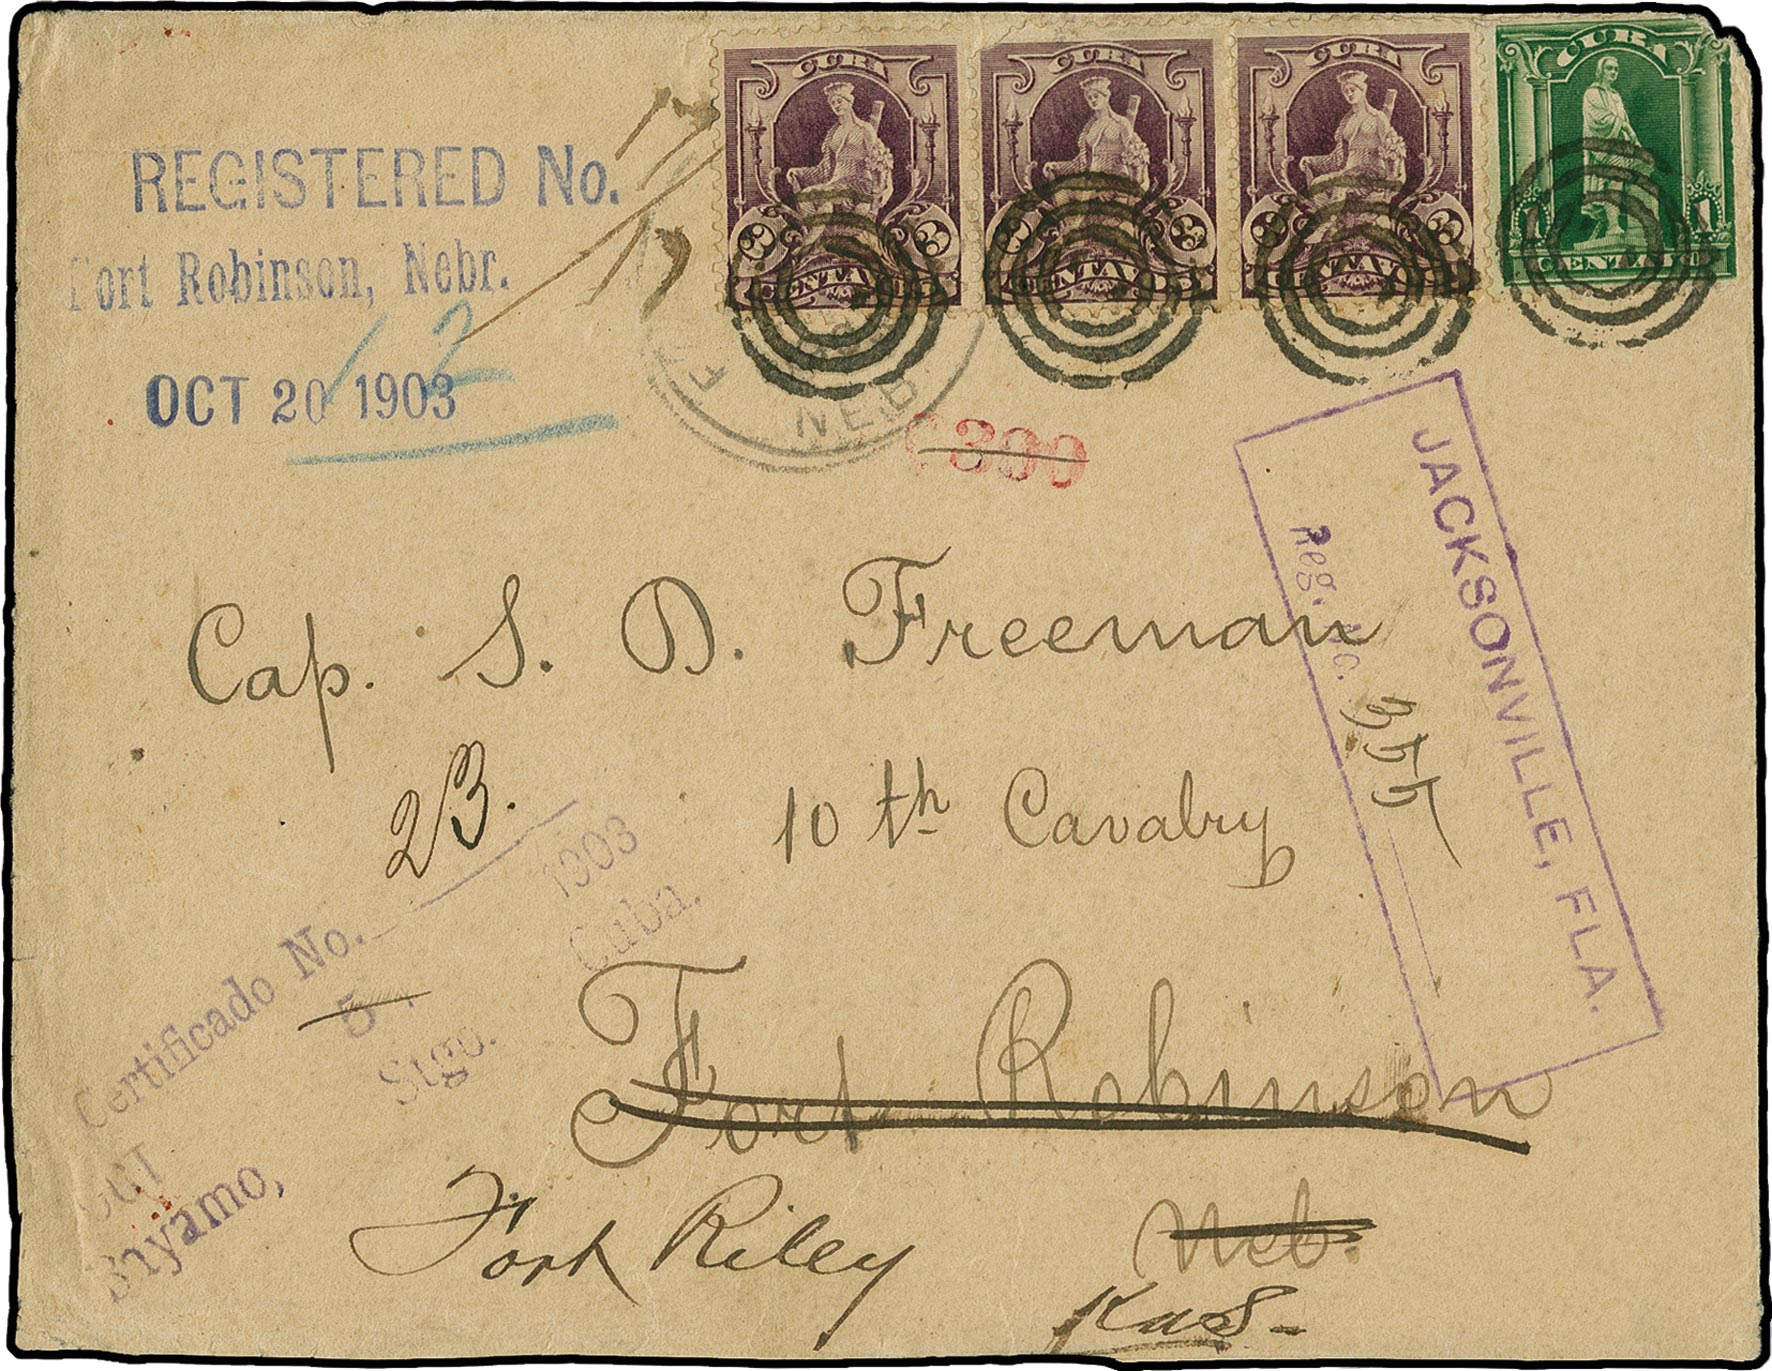 CUBA
3 3
CENTAVOS
CUBA
3 3
CENTAVOS
CUBA
3 3
CENTAVOS
CUBA
1 1
CENTAVO
REGISTERED No. 17
17
Fort Robinson, Nebr.
12
OCT 20 1903
NEB.
JACKSONVILLE, FLA.
Reg. No. 355
Cap. S. D. Freeman
10th Cavalry
Fort Robinson
Neb.
Fort Riley
Kas-
Certificado No. 23.
OCT 5 1903
Bayamo, Stgo. Cuba.